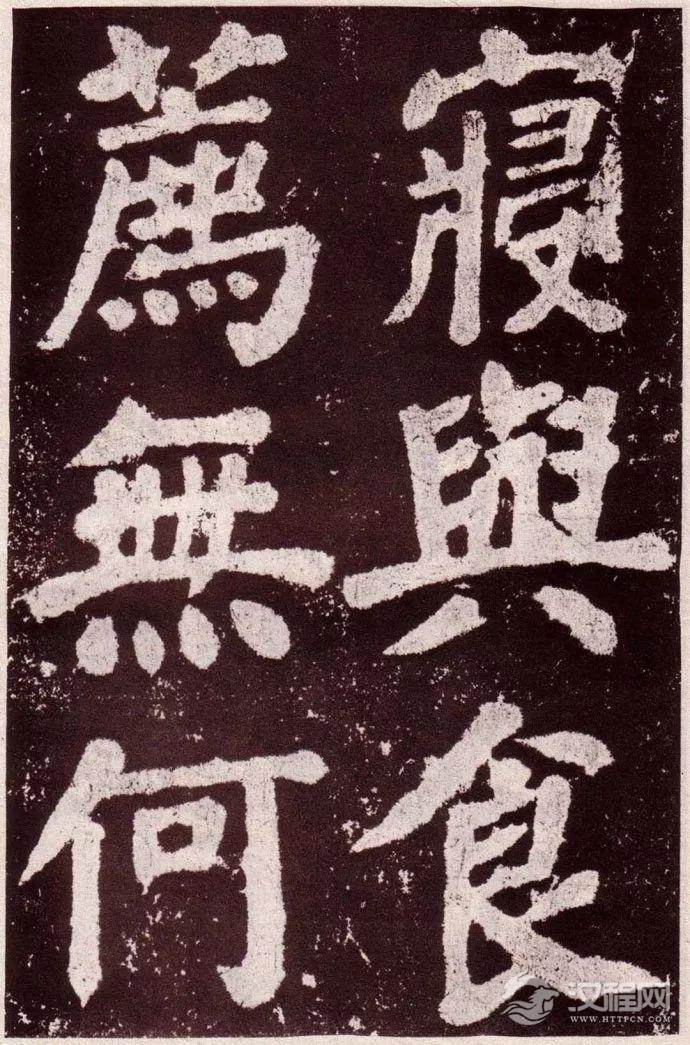 寢與食
薦無何
汉程网
WWW.HTTPCN.COM